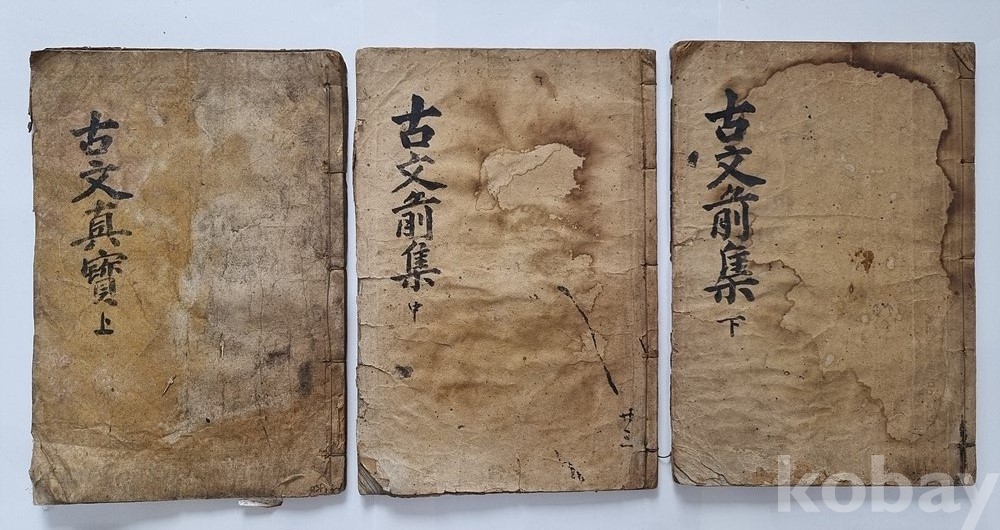 古文真寶 上
古文前集 中
廿三
古文前集 下
kobay